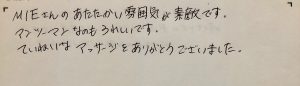 MIEさんのあたたかい雰囲気が素敵です。
マンツーマンなのもうれしいです。
ていねいなマッサージをありがとうございました。